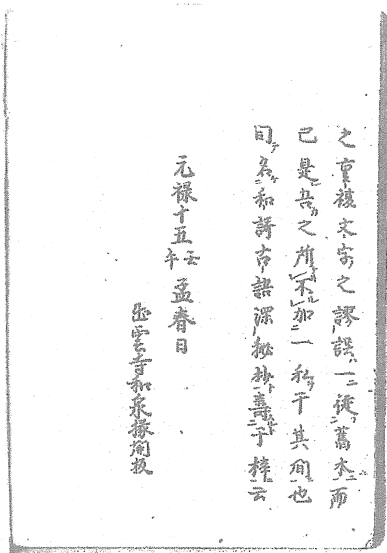 之重複文字之謬誤一一從舊本而
已是吾之所不加一私于其間也
曰名和訝古語深秘抄壽于梓云
元禄十五壬午孟春日
出雲寺和泉掾開板